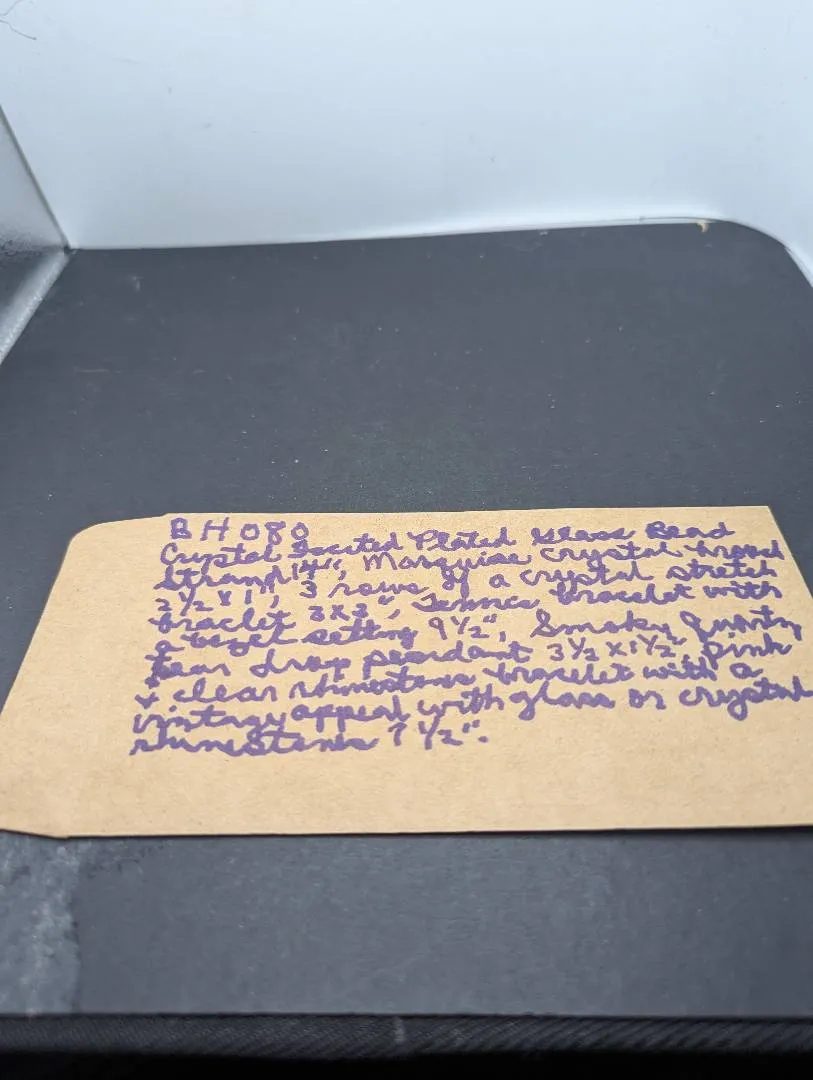 BH080
Crystal Faceted Plated Glass Bead
Strand 14", Marquise crystal brooch
2 1/2 x 1", 3 rows of a crystal stretch
braclet 3x3", Tennis bracelet with
a bezel setting 9 1/2", Smoky Quartz
tear drop pendant 3 1/2 x 1 1/2" pink
+ clear rhinestone bracelet with a
vintage appeal with glass or crystal
rhinestones 7 1/2".